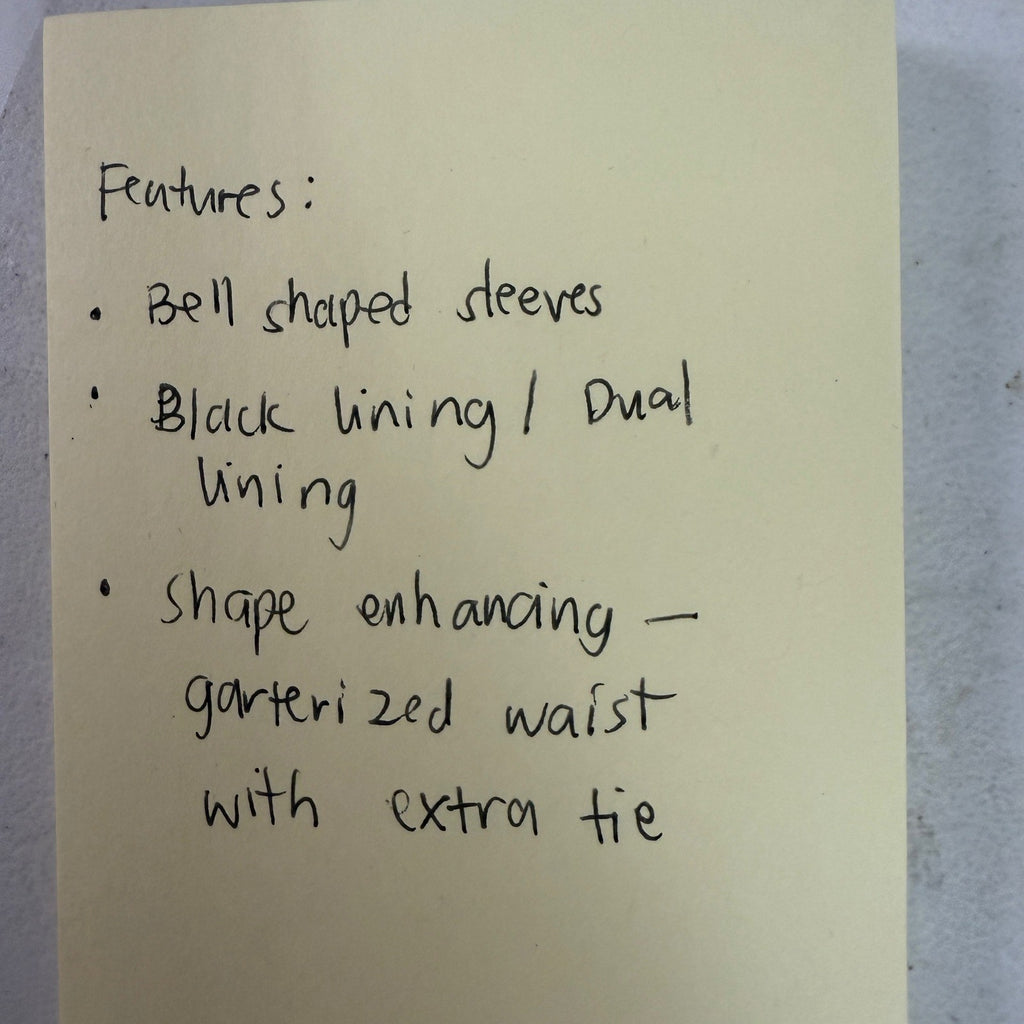 Features:
• Bell shaped sleeves
• Black lining / Dual
lining
• Shape enhancing –
garterized waist
with extra tie